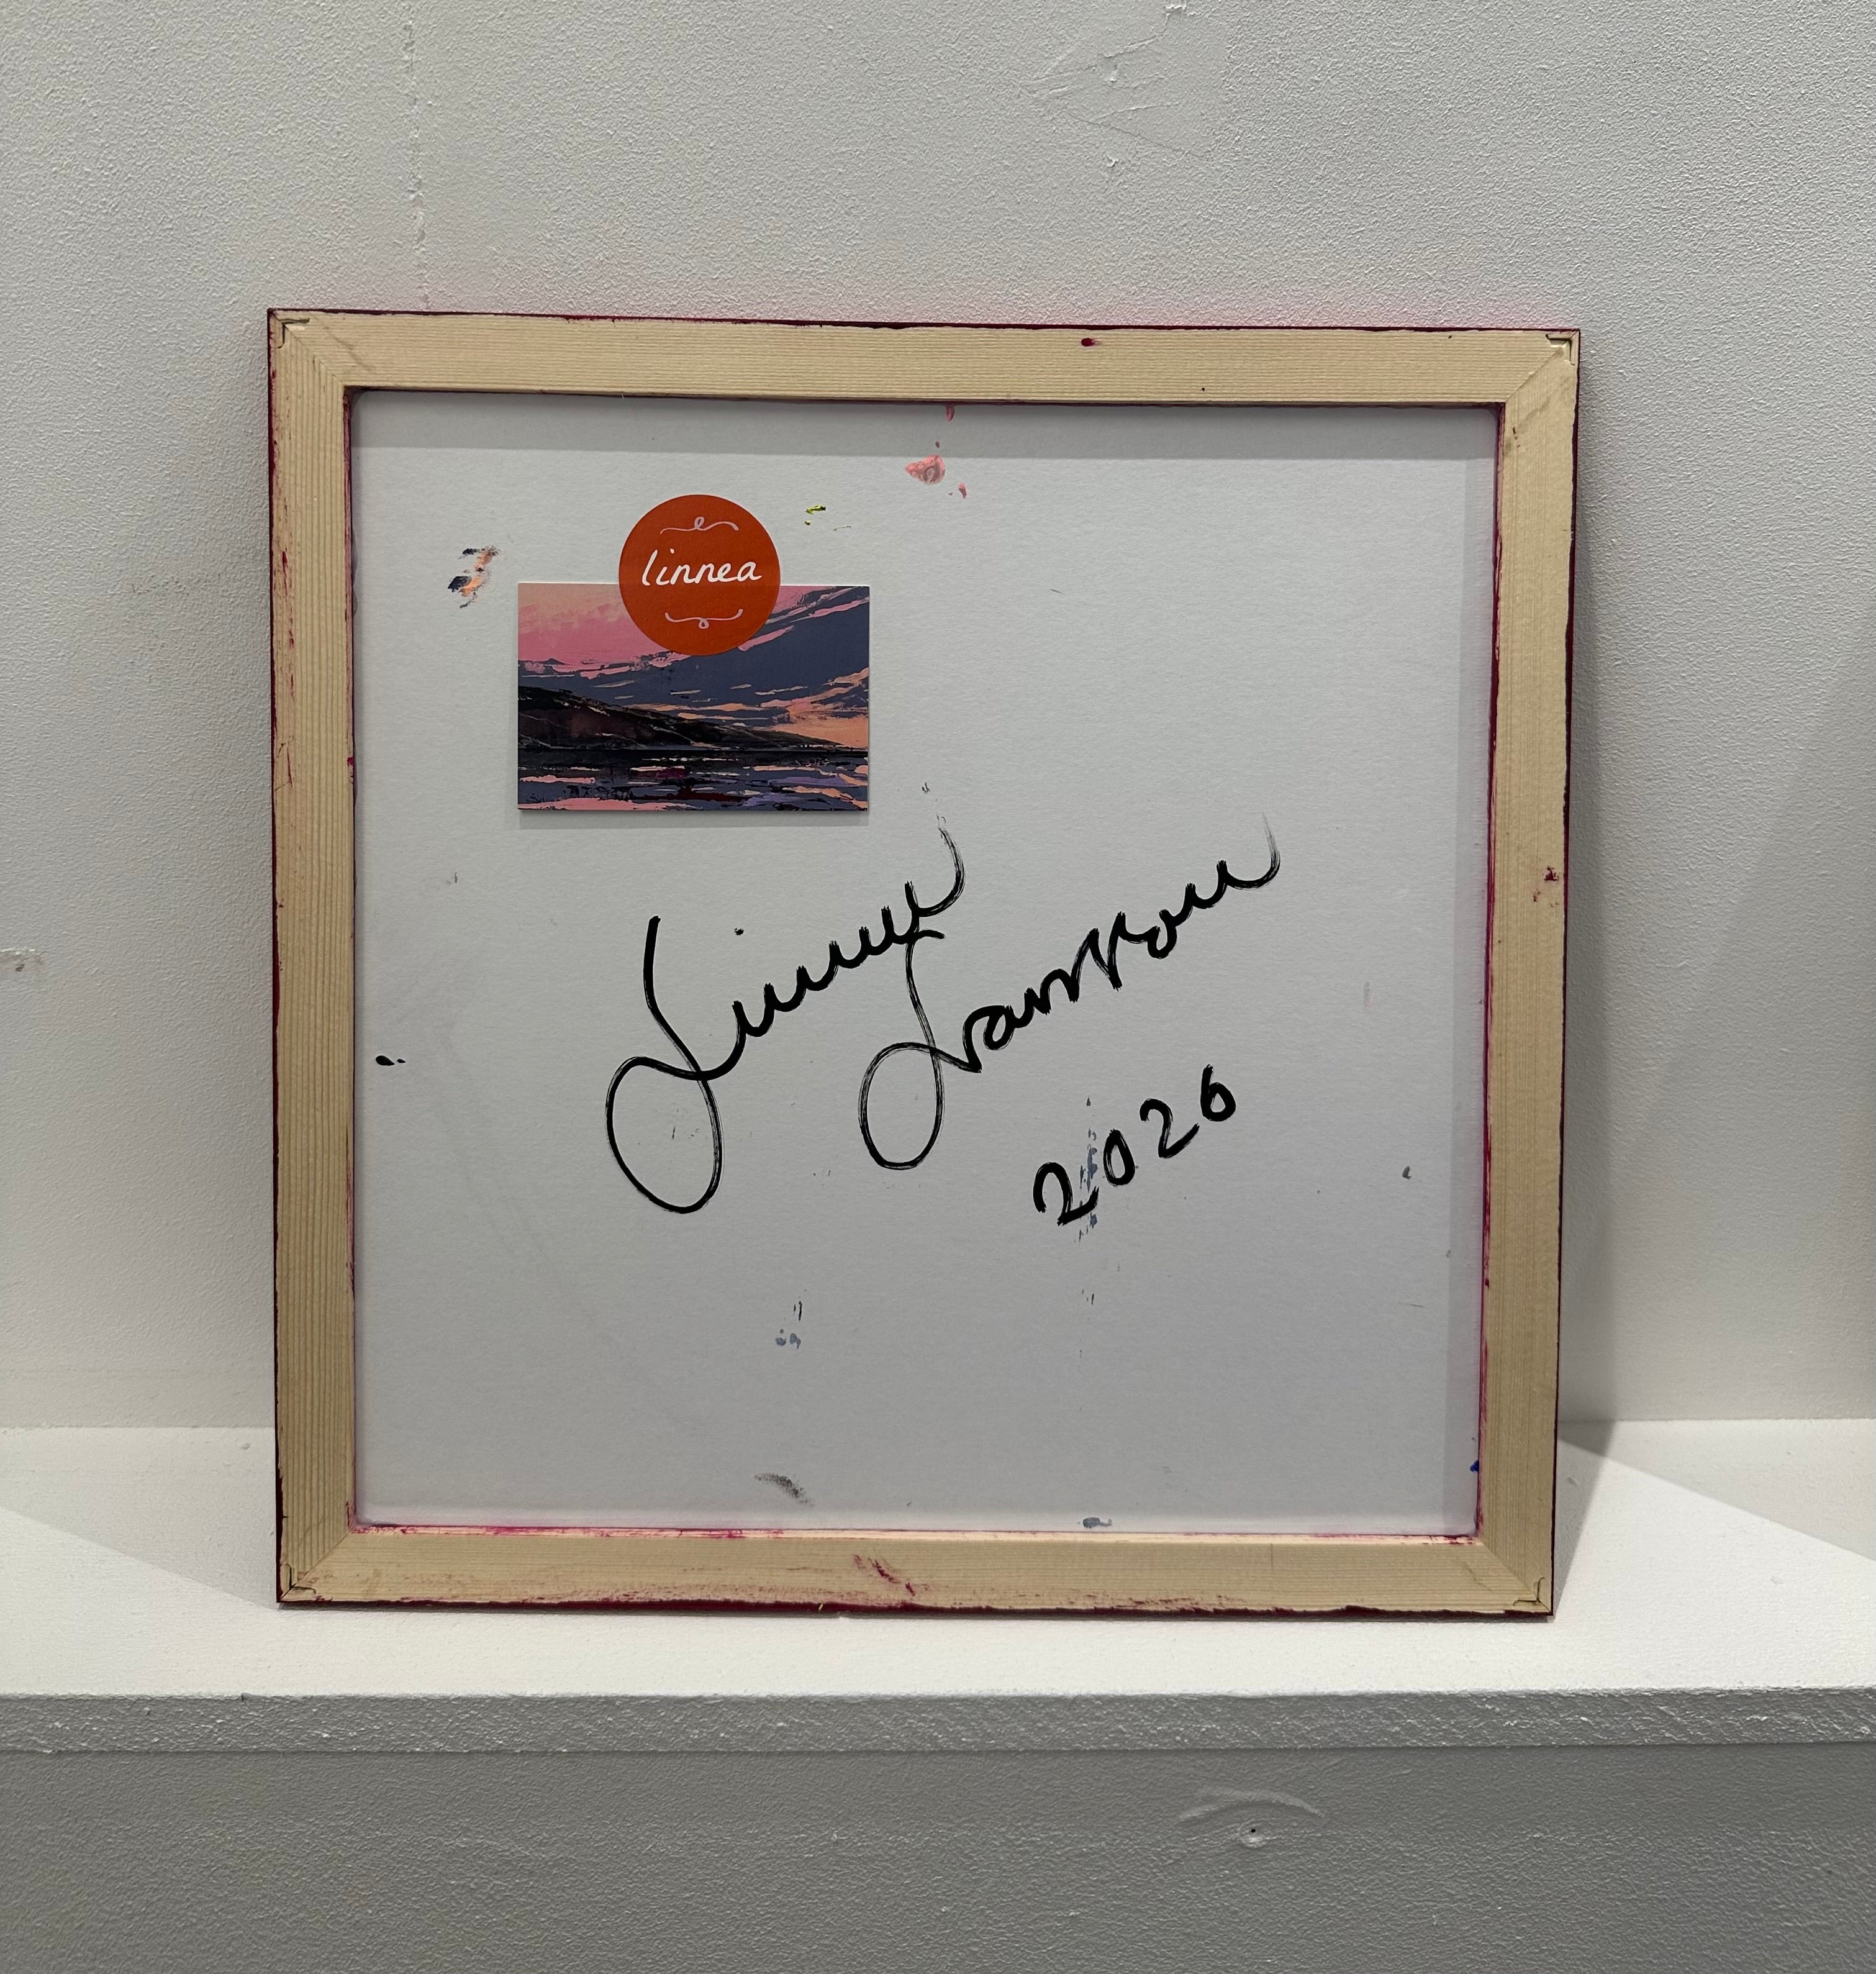 linnea
Linnea
Larsson
2026